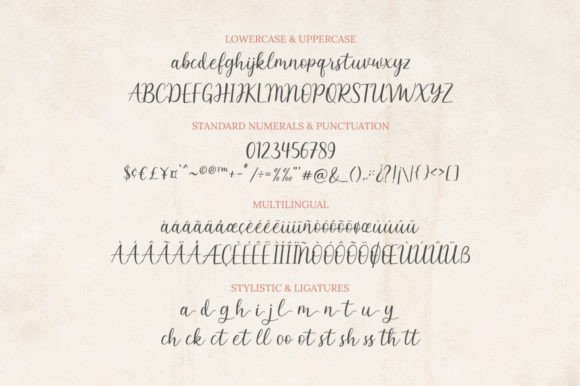 LOWERCASE & UPPERCASE
abcdefghijklmnopqrstuvwxyz
ABCDEFGHIJKLMNOPQRSTUVWXYZ
STANDARD NUMERALS & PUNCTUATION
0123456789
$¢€£¥¤`^~©®™+-*/÷=%‰"'#@&_(),.:;¿?!¡\|{}<>[]
MULTILINGUAL
àáâãäåæçèéêëìíîïñòóôõöøœùúûü
ÀÁÂÃÄÅÆÇÈÉÊËÌÍÎÏÑÒÓÔÕÖØŒÙÚÛÜß
STYLISTIC & LIGATURES
a d g h i j l m n t u y
ch ck ct et ll oo ot st sh ss th tt